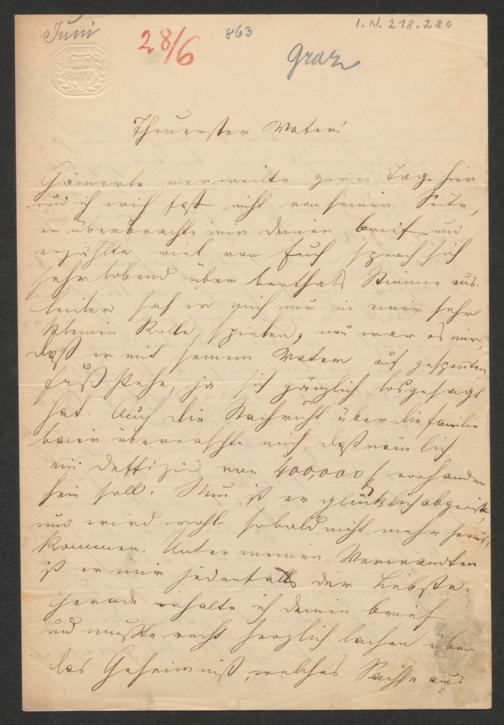 Juni
28/6
863
Graz
I.N. 218.280
Theuerster Vater!
verweilte zwei Tage hier
und ich wich fast nicht von seiner Seite,
er überbrachte mir deinen Brief und
erzählte viel von Euch sprach sich
sehr lobend über Berthas Stimme aus.
Leider sah er mich nur in einer sehr
kleinen Rolle spielen, neu war es mir,
daß er mit seinem Vater auf gespannten
Fuß stehe, ja sich gänzlich losgesagt
hat. Auch die Nachricht über die Familie
überraschte mich, daß nämlich
ein Deffizig von 400,000 f vorhanden
sein soll. Nun ist er glücklich abgereist,
und wird wohl sobald nicht mehr
kommen. Unter meinen Verwandten
ist er mir jedenfalls der Liebste.
Gerade erhalte ich deinen Brief
und mußte recht herzlich lachen über
das Geheimniß, welches Sachse aus